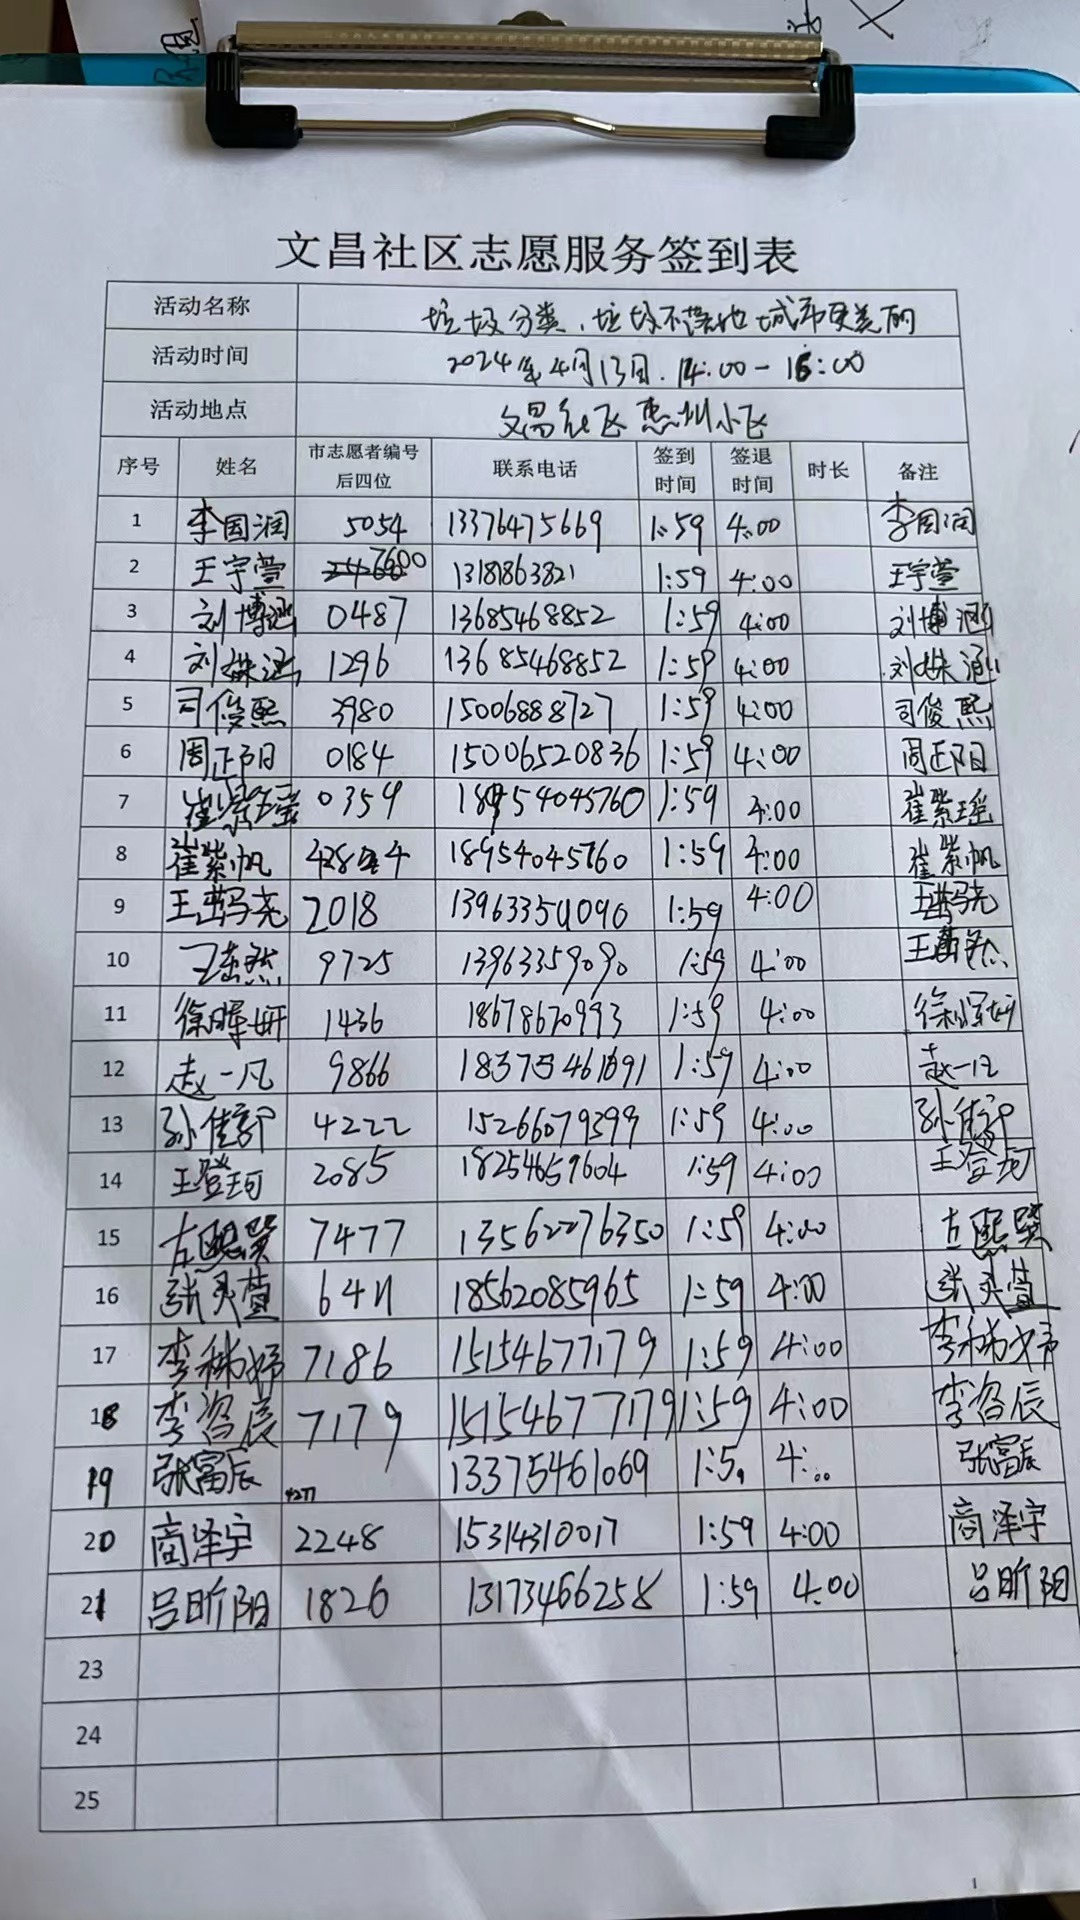 文昌社区志愿服务签到表
活动名称 垃圾分类、垃圾不落地 城市更美丽
活动时间 2024年4月13日. 14:00-16:00
活动地点 文昌社区 惠州小区
序号 姓名 市志愿者编号后四位 联系电话 签到时间 签退时间 时长 备注
1 李国润 5054 13376475669 1:59 4:00 李国润
2 王宇萱 7600 13181863821 1:59 4:00 王宇萱
3 刘博涵 0487 13685468852 1:59 4:00 刘博涵
4 刘姝涵 1296 13685468852 1:59 4:00 刘姝涵
5 司俊熙 3980 15006888727 1:59 4:00 司俊熙
6 周正阳 0184 15006520836 1:59 4:00 周正阳
7 崔紫瑶 0359 18954045760 1:59 4:00 崔紫瑶
8 崔紫帆 18954045760 1:59 4:00 崔紫帆
9 2018 13963359090 1:59 4:00
10 9725 13963359090 1:59 4:00
11 徐暺妍 1436 18678670993 1:59 4:00
12 赵一凡 9866 1:59 4:00 赵一凡
13 孙佳 4222 15266079399 1:59 4:00 孙佳
14 王登珂 2085 18254659604 1:59 4:00 王登珂
15 左熙 7477 13562276350 1:59 4:00 左熙
16 张灵萱 6411 18562085965 1:59 4:00 张灵萱
17 李 7186 15154677179 1:59 4:00 李
18 李咨辰 7179 15154677179 1:59 4:00 李咨辰
19 张富辰 4277 13375461069 1:5 4:00 张富辰
20 商泽宇 2248 15314310017 1:59 4:00 商泽宇
21 吕昕阳 1826 13173466258 1:59 4:00 吕昕阳
23
24
25
1